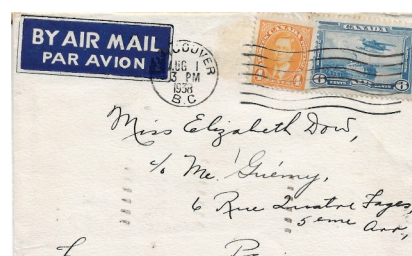 BY AIR MAIL
PAR AVION
VANCOUVER
AUG 1
13 PM
1938
B.C
CANADA
CANADA
6 6
Miss Elizabeth Dow,
c/o Me. Guérny,
6 Rue Quatre Fages,
5eme Arr,